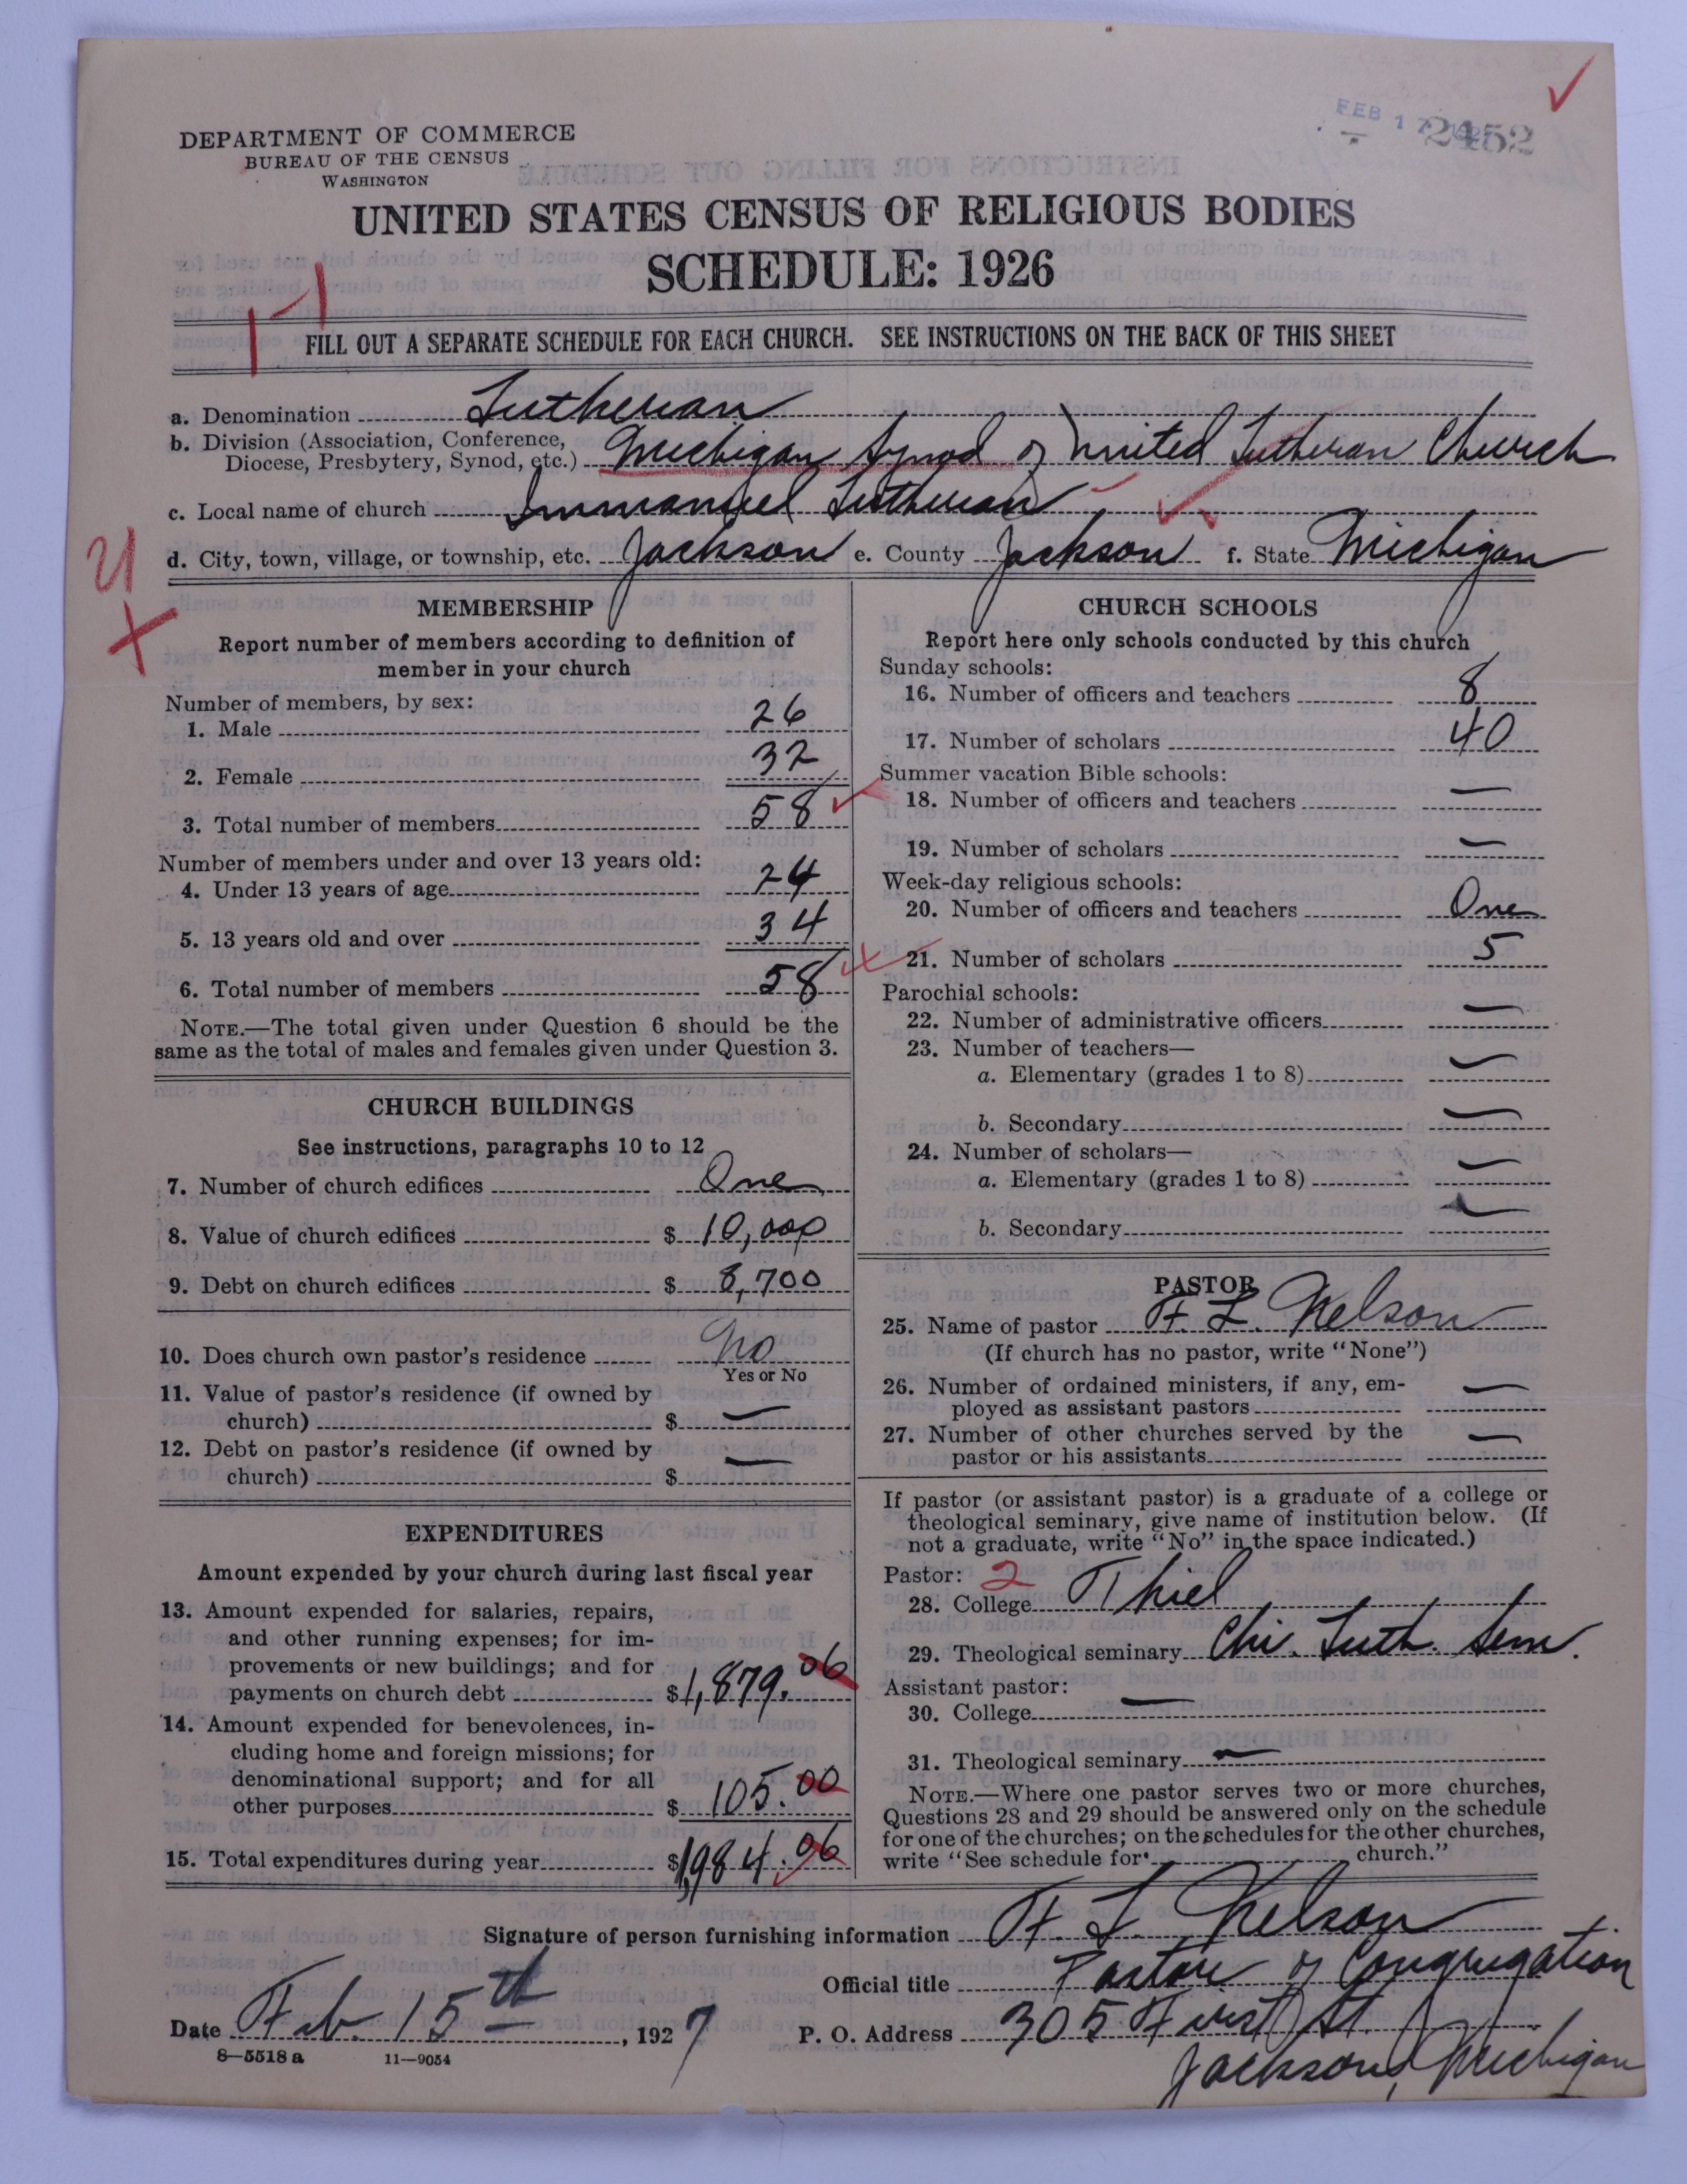 FEB 17 1927 2452
DEPARTMENT OF COMMERCE
BUREAU OF THE CENSUS
WASHINGTON
UNITED STATES CENSUS OF RELIGIOUS BODIES
SCHEDULE: 1926
FILL OUT A SEPARATE SCHEDULE FOR EACH CHURCH. SEE INSTRUCTIONS ON THE BACK OF THIS SHEET
a. Denomination Lutheran
b. Division (Association, Conference,
Diocese, Presbytery, Synod, etc.) Michigan Synod of United Lutheran Church
c. Local name of church Immanuel Lutheran
d. City, town, village, or township, etc. Jackson e. County Jackson f. State Michigan
MEMBERSHIP
Report number of members according to definition of
member in your church
Number of members, by sex:
1. Male 26
2. Female 32
3. Total number of members 58
Number of members under and over 13 years old:
4. Under 13 years of age 24
5. 13 years old and over 34
6. Total number of members 58
NOTE.—The total given under Question 6 should be the
same as the total of males and females given under Question 3.
CHURCH BUILDINGS
See instructions, paragraphs 10 to 12
7. Number of church edifices One
8. Value of church edifices $ 10,000
9. Debt on church edifices $ 8,700
10. Does church own pastor's residence No
Yes or No
11. Value of pastor's residence (if owned by
church) $ —
12. Debt on pastor's residence (if owned by
church) $ —
EXPENDITURES
Amount expended by your church during last fiscal year
13. Amount expended for salaries, repairs,
and other running expenses; for im-
provements or new buildings; and for
payments on church debt $1,879.06
14. Amount expended for benevolences, in-
cluding home and foreign missions; for
denominational support; and for all
other purposes $ 105.00
15. Total expenditures during year $1,984.06
CHURCH SCHOOLS
Report here only schools conducted by this church
Sunday schools:
16. Number of officers and teachers 8
17. Number of scholars 40
Summer vacation Bible schools:
18. Number of officers and teachers —
19. Number of scholars —
Week-day religious schools:
20. Number of officers and teachers One
21. Number of scholars 5
Parochial schools:
22. Number of administrative officers —
23. Number of teachers—
a. Elementary (grades 1 to 8) —
b. Secondary —
24. Number of scholars—
a. Elementary (grades 1 to 8) —
b. Secondary —
PASTOR
25. Name of pastor F. L. Nelson
(If church has no pastor, write "None")
26. Number of ordained ministers, if any, em-
ployed as assistant pastors —
27. Number of other churches served by the
pastor or his assistants —
If pastor (or assistant pastor) is a graduate of a college or
theological seminary, give name of institution below. (If
not a graduate, write "No" in the space indicated.)
Pastor: 2
28. College Thiel
29. Theological seminary Chi. Luth. Sem.
Assistant pastor:
30. College —
31. Theological seminary —
NOTE.—Where one pastor serves two or more churches,
Questions 28 and 29 should be answered only on the schedule
for one of the churches; on the schedules for the other churches,
write "See schedule for church."
Signature of person furnishing information F. L. Nelson
Official title Pastor of Congregation
Date Feb. 15th, 1927 P. O. Address 305 First St.
Jackson, Michigan
8—5518 a 11—9054